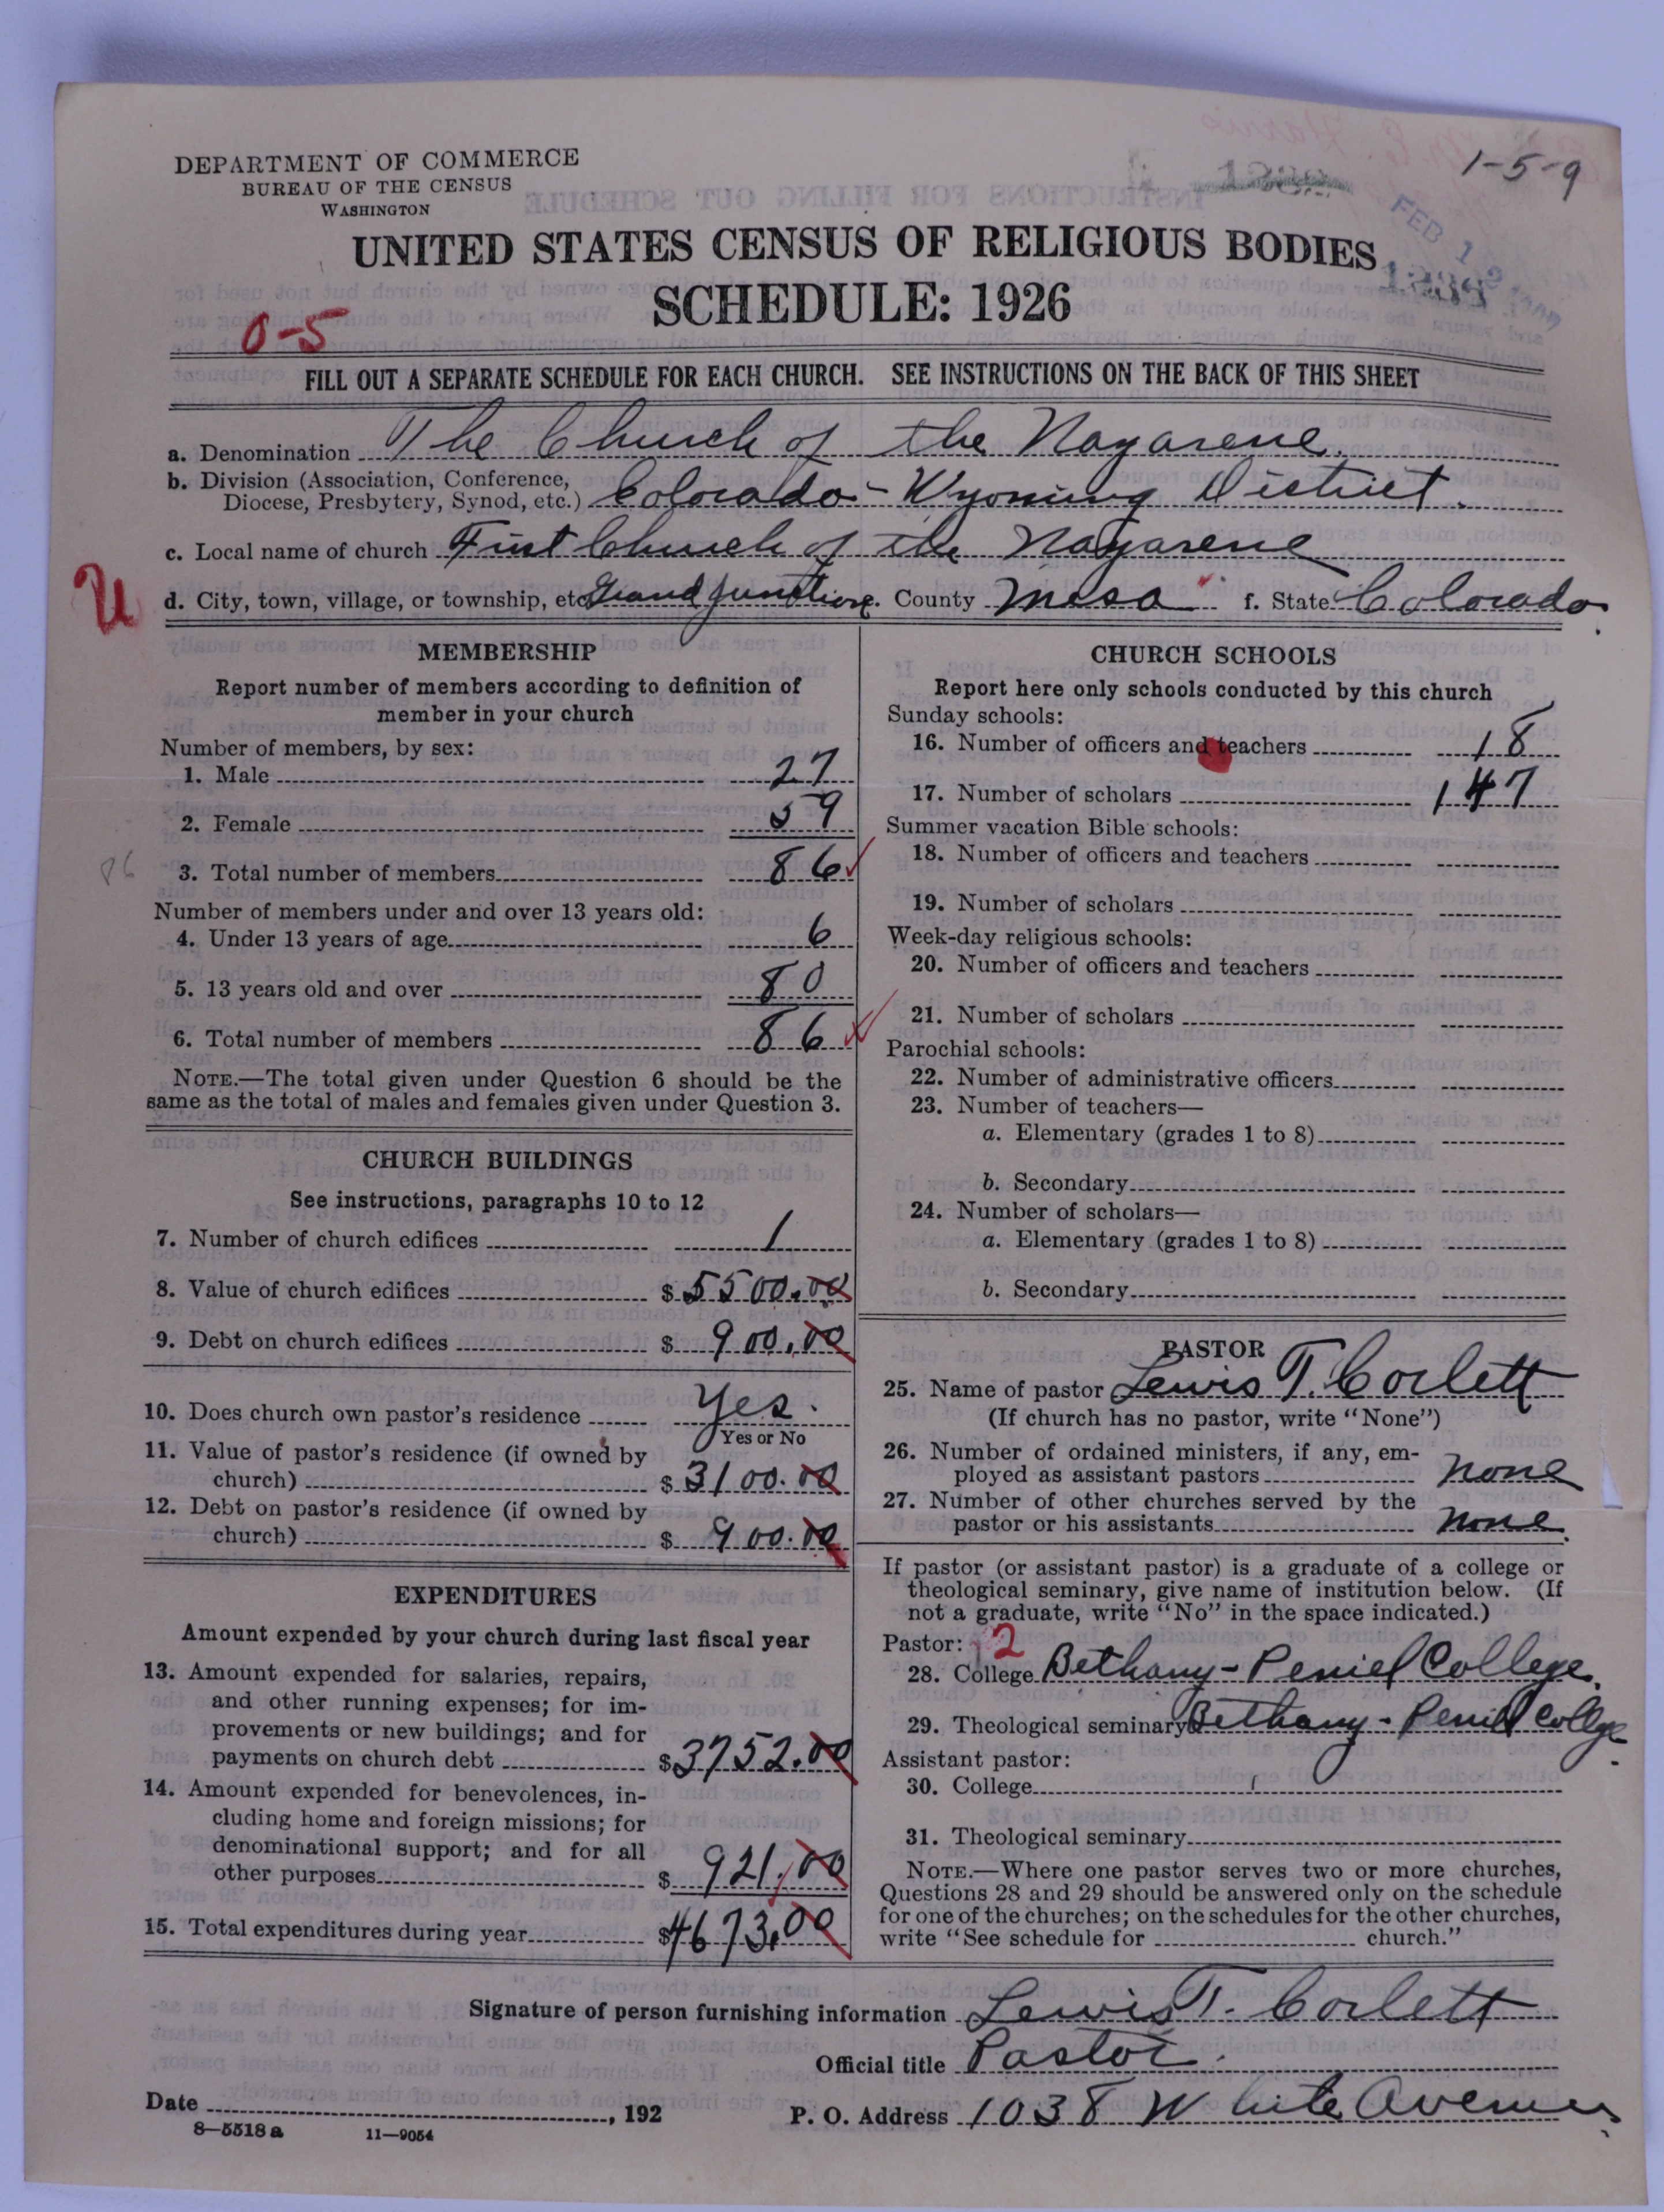 1-5-9
DEPARTMENT OF COMMERCE
BUREAU OF THE CENSUS
WASHINGTON
FEB 12
UNITED STATES CENSUS OF RELIGIOUS BODIES
SCHEDULE: 1926
0-5
FILL OUT A SEPARATE SCHEDULE FOR EACH CHURCH. SEE INSTRUCTIONS ON THE BACK OF THIS SHEET
a. Denomination The Church of the Nazarene.
b. Division (Association, Conference, Diocese, Presbytery, Synod, etc.) Colorado-Wyoming District.
c. Local name of church First Church of the Nazarene
U
d. City, town, village, or township, etc Grand Junction e. County Mesa f. State Colorado.
MEMBERSHIP
Report number of members according to definition of
member in your church
Number of members, by sex:
1. Male 27
2. Female 59
86
3. Total number of members 86
Number of members under and over 13 years old:
4. Under 13 years of age 6
5. 13 years old and over 80
6. Total number of members 86
NOTE.—The total given under Question 6 should be the
same as the total of males and females given under Question 3.
CHURCH BUILDINGS
See instructions, paragraphs 10 to 12
7. Number of church edifices 1
8. Value of church edifices $ 5500.00
9. Debt on church edifices $ 900.00
10. Does church own pastor's residence Yes.
Yes or No
11. Value of pastor's residence (if owned by
church) $ 3100.00
12. Debt on pastor's residence (if owned by
church) $ 900.00
EXPENDITURES
Amount expended by your church during last fiscal year
13. Amount expended for salaries, repairs,
and other running expenses; for im-
provements or new buildings; and for
payments on church debt $ 3752.00
14. Amount expended for benevolences, in-
cluding home and foreign missions; for
denominational support; and for all
other purposes $ 921.00
15. Total expenditures during year $ 4673.00
CHURCH SCHOOLS
Report here only schools conducted by this church
Sunday schools:
16. Number of officers and teachers 18
17. Number of scholars 147
Summer vacation Bible schools:
18. Number of officers and teachers
19. Number of scholars
Week-day religious schools:
20. Number of officers and teachers
21. Number of scholars
Parochial schools:
22. Number of administrative officers
23. Number of teachers—
a. Elementary (grades 1 to 8)
b. Secondary
24. Number of scholars—
a. Elementary (grades 1 to 8)
b. Secondary
PASTOR
25. Name of pastor Lewis T. Corlett
(If church has no pastor, write "None")
26. Number of ordained ministers, if any, em-
ployed as assistant pastors none
27. Number of other churches served by the
pastor or his assistants none.
If pastor (or assistant pastor) is a graduate of a college or
theological seminary, give name of institution below. (If
not a graduate, write "No" in the space indicated.)
Pastor: 2
28. College Bethany-Peniel College.
29. Theological seminary Bethany-Peniel College.
Assistant pastor:
30. College
31. Theological seminary
NOTE.—Where one pastor serves two or more churches,
Questions 28 and 29 should be answered only on the schedule
for one of the churches; on the schedules for the other churches,
write "See schedule for church."
Signature of person furnishing information Lewis T. Corlett
Official title Pastor.
Date , 192 P. O. Address 1038 White Avenue.
8—5518a 11—9054